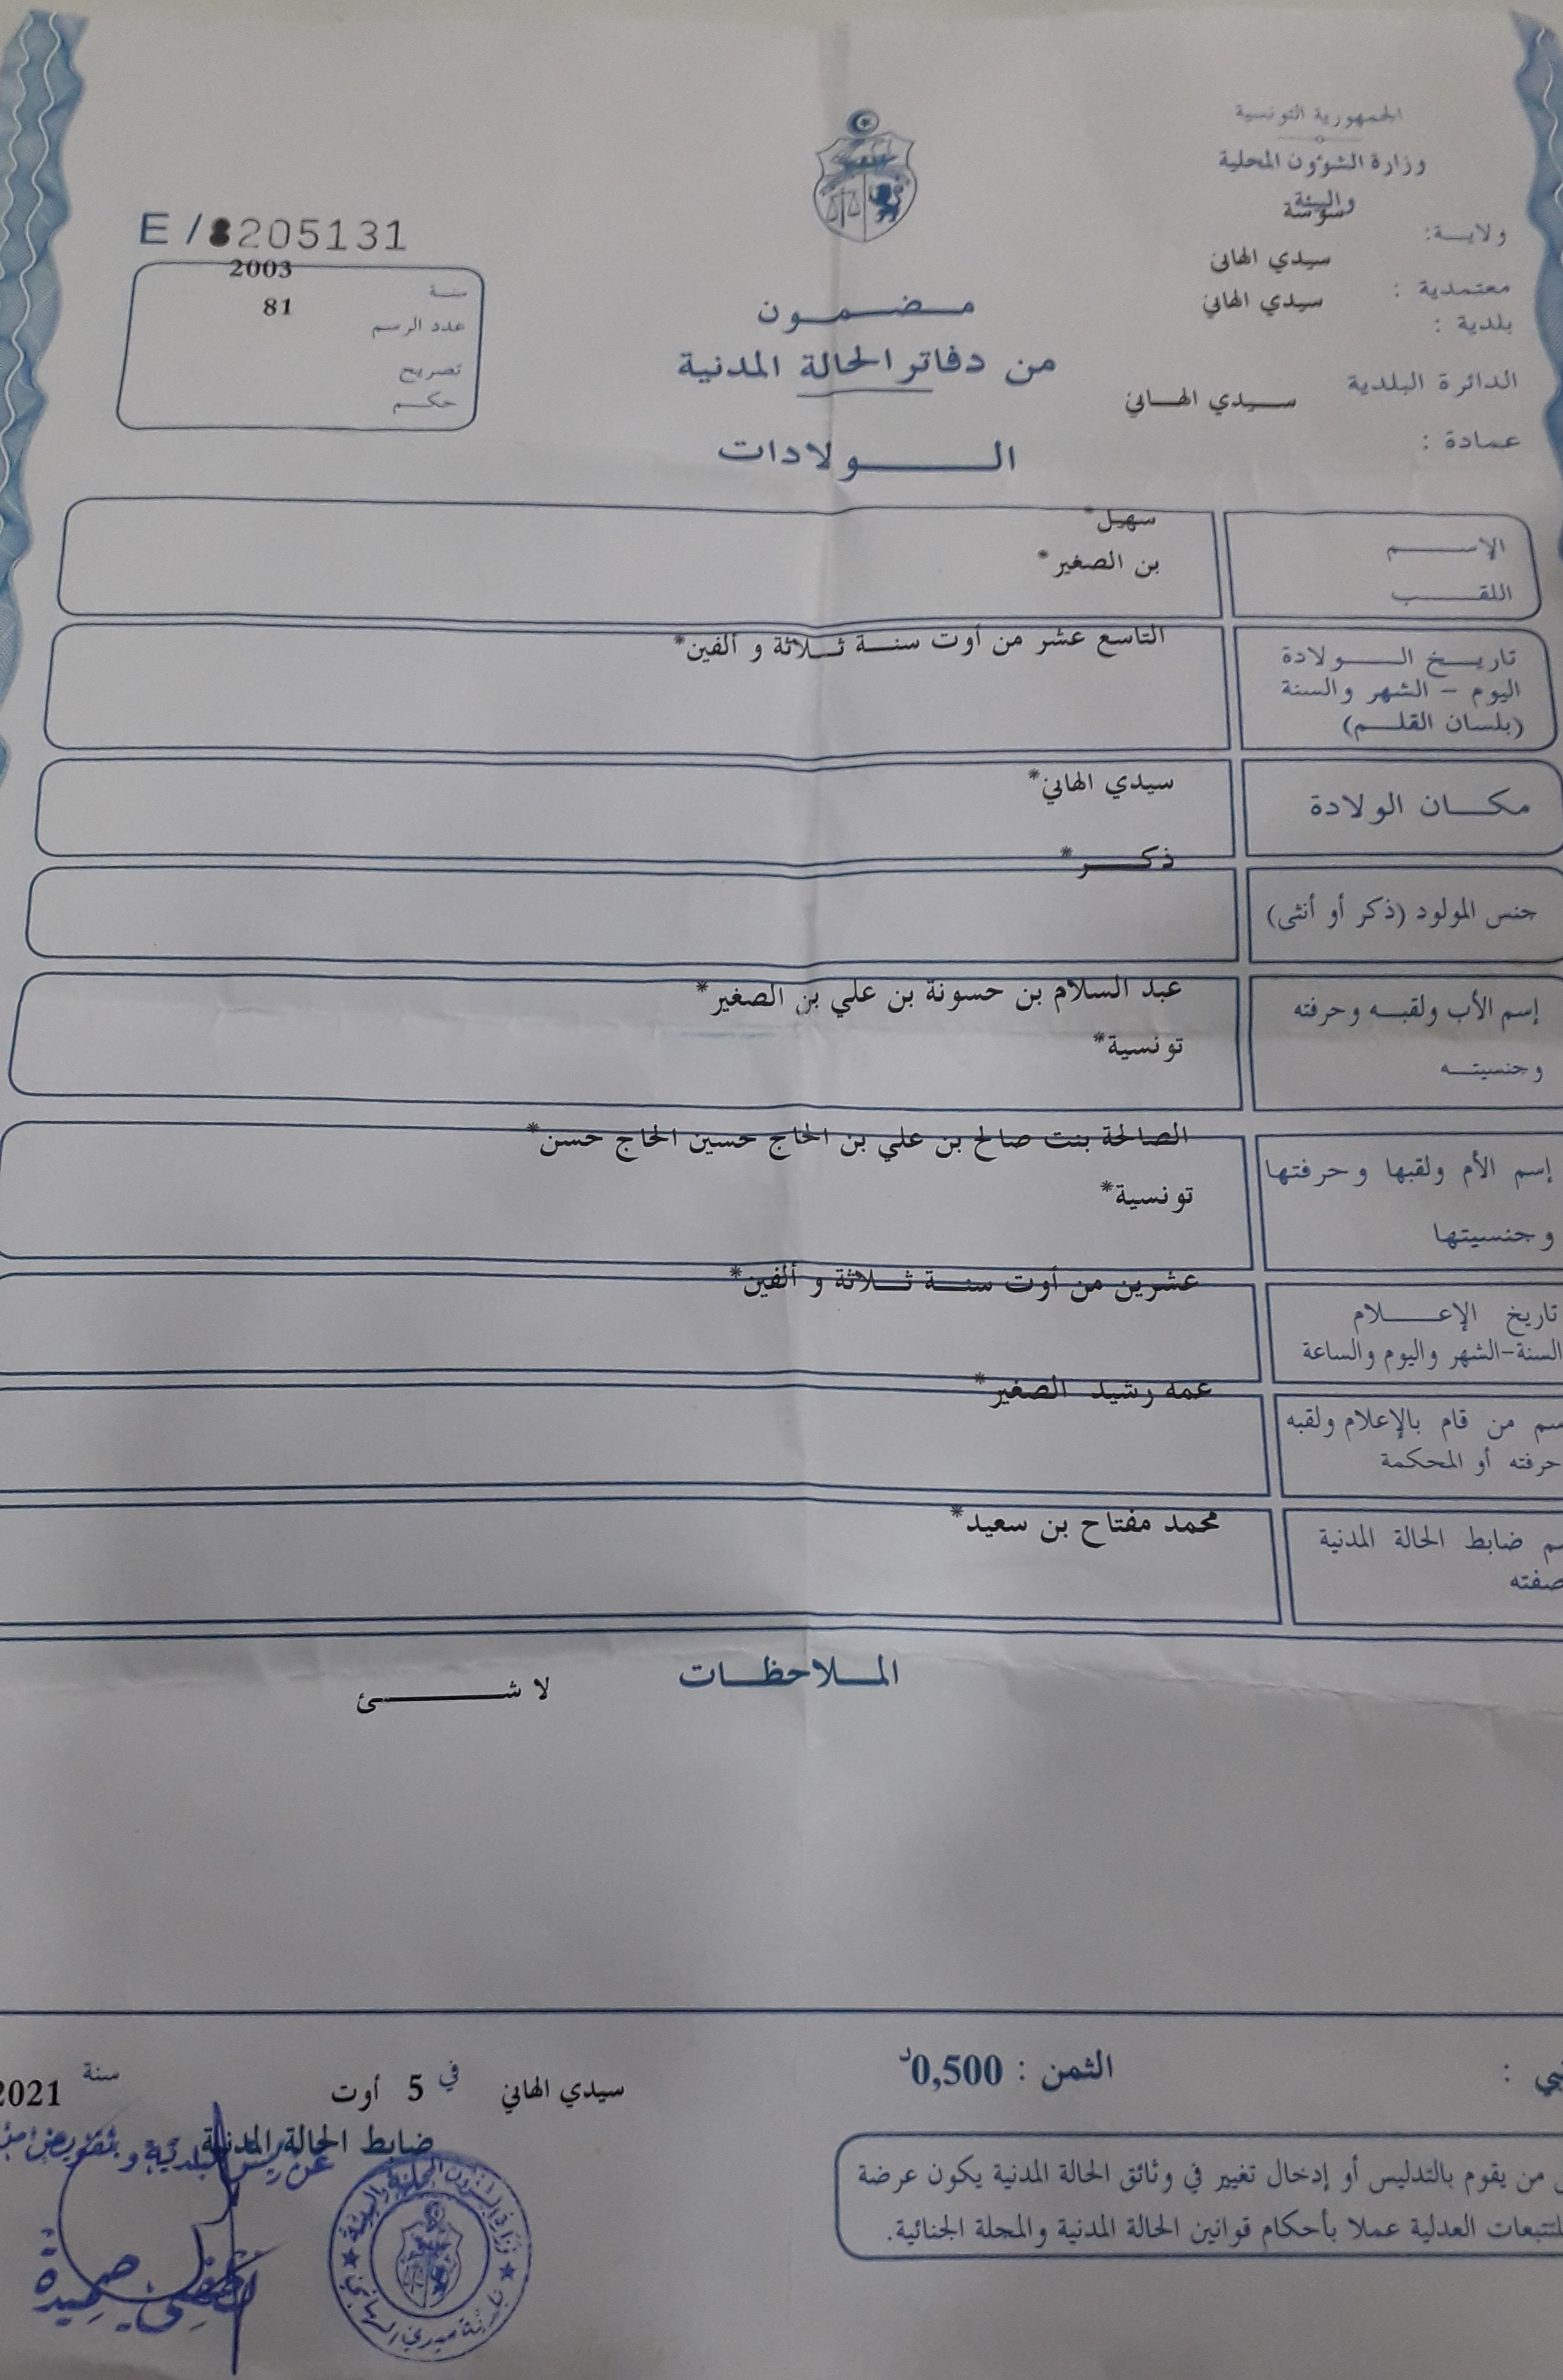 الجمهورية التونسية
وزارة الشؤون المحلية
والبيئة
ولاية: سوسة
معتمدية : سيدي الهاني
بلدية : سيدي الهاني
الدائرة البلدية سيدي الهاني
عمادة :
E /8205131
سنة 2003
عدد الرسم 81
تصريح
حكم
مضمون
من دفاتر الحالة المدنية
الولادات
الإسم سهيل*
اللقب بن الصغير*
تاريخ الولادة التاسع عشر من أوت سنة ثلاثة و ألفين*
اليوم – الشهر والسنة
(بلسان القلم)
مكان الولادة سيدي الهاني*
جنس المولود (ذكر أو أنثى) ذكر*
إسم الأب ولقبه وحرفته عبد السلام بن حسونة بن علي بن الصغير*
وجنسيته تونسية*
إسم الأم ولقبها وحرفتها الصالحة بنت صالح بن علي بن الحاج حسين الحاج حسن*
وجنسيتها تونسية*
تاريخ الإعلام عشرين من أوت سنة ثلاثة و ألفين*
السنة-الشهر واليوم والساعة
سم من قام بالإعلام ولقبه عمه رشيد الصغير*
حرفته أو المحكمة
سم ضابط الحالة المدنية محمد مفتاح بن سعيد*
صفته
الملاحظات
لا شئ
الثمن : 0,500د
سيدي الهاني في 5 أوت سنة 2021
ضابط الحالة المدنية
عن رئيس البلدية و بتفويض منه
من يقوم بالتدليس أو إدخال تغيير في وثائق الحالة المدنية يكون عرضة
للتتبعات العدلية عملا بأحكام قوانين الحالة المدنية والمجلة الجنائية.
وزارة الشؤون المحلية والبيئة
بلدية سيدي الهاني